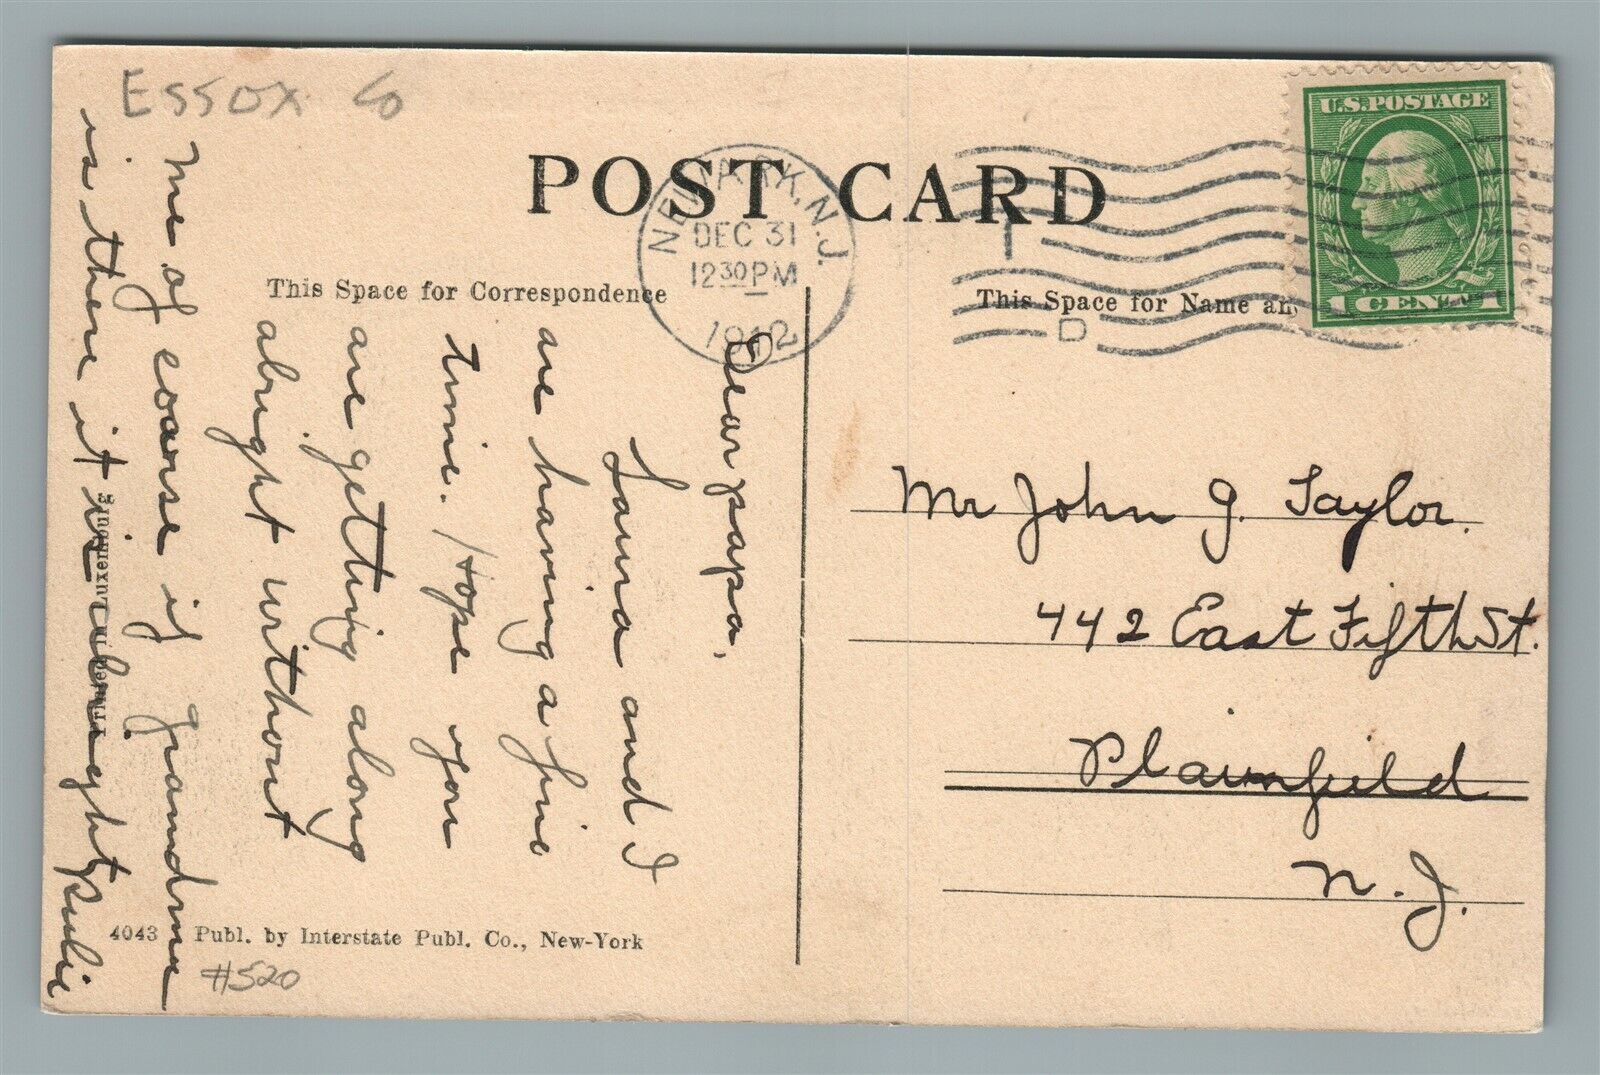 Essox Co
POST CARD
NEWARK, N.J.
DEC 31
12 30 PM
1912
U.S. POSTAGE
1 CENT 1
This Space for Correspondence
This Space for Name an
Dear papa.
Laura and I
are having a fine
time. Hope you
are getting along
abright without
me of coarse if grandma
is there it is alright
Julie
Mr John J. Taylor.
442 East Fifth St.
Plainfield
N. J.
Luxembourg
4043 Publ. by Interstate Publ. Co., New-York
#520